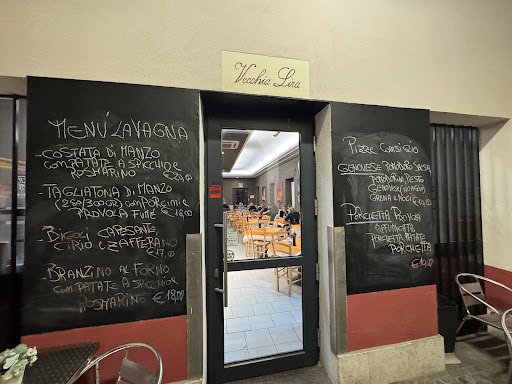 Vecchia Lira
MENÚ LAVAGNA
-COSTATA DI MANZO
CON PATATE A SPICCHIO E
ROSMARINO
-TAGLIATONA DI MANZO
(250/300GR) CON PORCINI E
PROVOLA FUME
€18,00
-BIGOLI CAPESANTE,
E ZAFFERANO
€17,00
-BRANZINO AL FORNO
CON PATATE A SPICCHIO E
ROSMARINO €18,00
PIZZE
GENOVESE POMODORO
POMODORINI, PESTO
GENOVESE,
GRANA E NOCI
PORCHETTA
AFFUMICATA,
PORCHETTA, PATATE
PORCHETTA